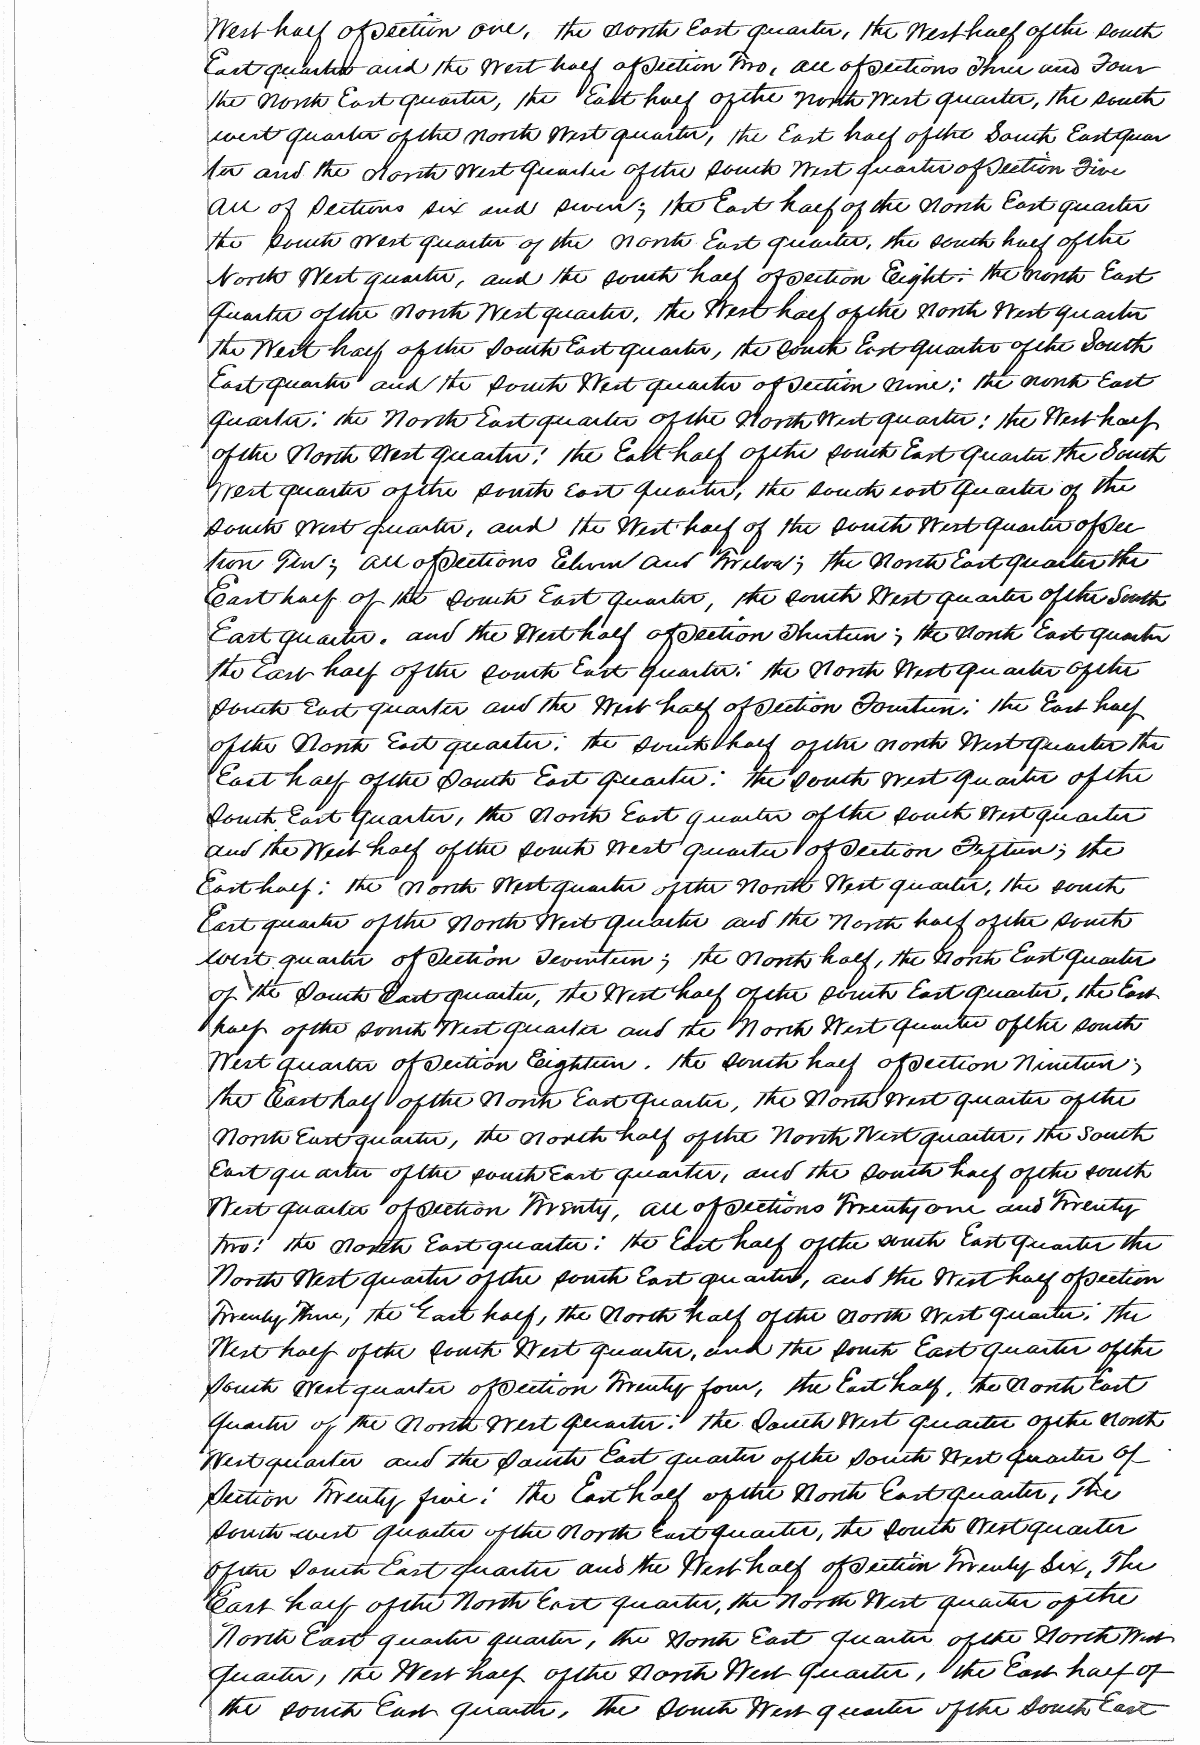 West half of Section one, the North East quarter, the West half of the South
East quarter and the West half of Section Two, all of Sections Three and Four
the North East quarter, the East half of the North West quarter, the South
west quarter of the North West quarter, the East half of the South East quar
ter and the North West Quarter of the South West quarter of Section Five
All of Sections Six and Seven; the East half of the North East quarter
the South West quarter of the North East quarter, the South half of the
North West quarter, and the South half of Section Eight: the North East
Quarter of the North West quarter, the West half of the North West quarter
the West half of the South East quarter, the South East quarter of the South
East quarter and the South West quarter of Section Nine; the North East
Quarter: the North East quarter of the North West quarter: the West half
of the North West quarter: the East half of the South East quarter the South
West quarter of the South East Quarter, the South east quarter of the
South West quarter, and the West half of the South West Quarter of Sec
tion Ten; all of Sections Eleven and Twelve; the North East Quarter the
East half of the South East quarter, the South West quarter of the South
East quarter. and the West half of Section Thirteen; the North East quarter
the East half of the South East quarter: the North West quarter of the
South East quarter and the West half of Section Fourteen: the East half
of the North East quarter: the South half of the North West quarter the
East half of the South East Quarter: the South West quarter of the
South East Quarter, the North East quarter of the South West quarter
and the West half of the South West quarter of Section Fifteen; the
East half: the North West quarter of the North West quarter, the South
East quarter of the North West quarter and the North half of the South
West quarter of Section Seventeen; the North half, the North East quarter
of the South East quarter, the West half of the South East quarter, the East
half of the South West quarter and the North West quarter of the South
West quarter of Section Eighteen. the South half of Section Nineteen;
the East half of the North East Quarter, the North West quarter of the
North East quarter, the North half of the North West quarter, the South
East quarter of the South East quarter, and the South half of the South
West quarter of Section Twenty, all of Sections Twenty one and Twenty
two: the North East quarter: the East half of the South East quarter the
North West quarter of the South East quarter, and the West half of Section
Twenty Three, the East half, the North half of the North West quarter: the
West half of the South West quarter, and the South East quarter of the
South West quarter of Section Twenty four, the East half, the North East
Quarter of the North West quarter: the South West quarter of the North
West quarter and the South East quarter of the South West quarter of
Section Twenty five: the East half of the North East quarter, The
South west quarter of the North East quarter, the South West quarter
of the South East quarter and the West half of Section Twenty Six, The
East half of the North East quarter, the North West quarter of the
North East quarter quarter, the North East quarter of the North West
quarter, the West half of the North West quarter, the East half of
the South East quarter, the South West quarter of the South East